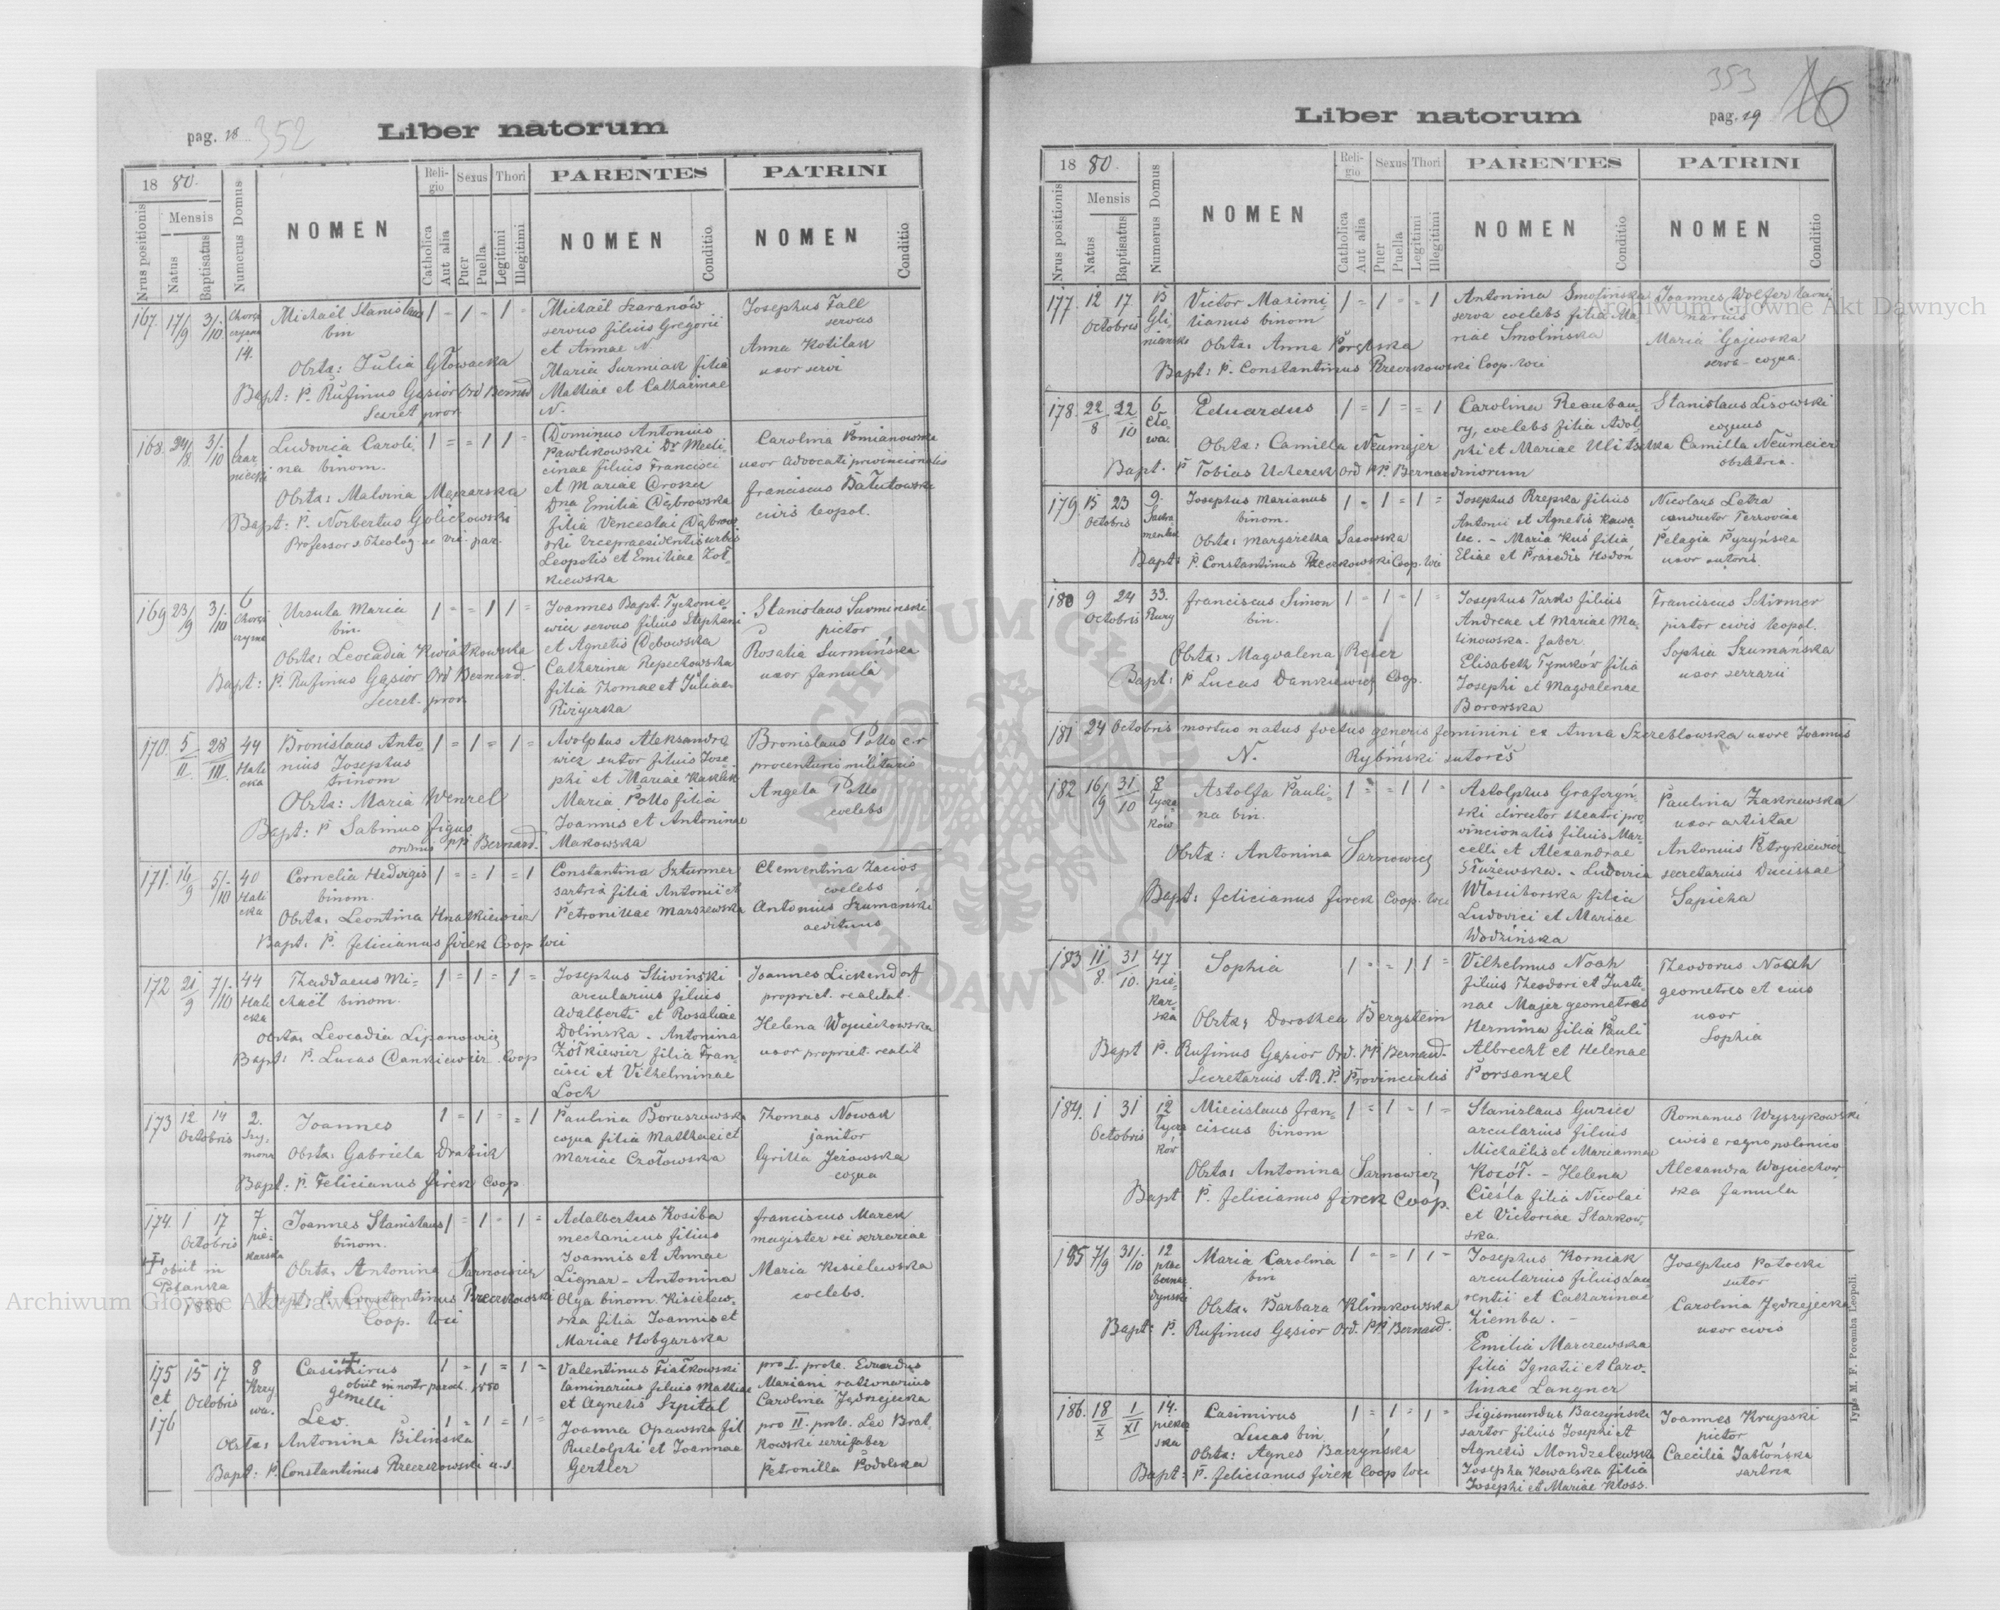 pag. 18 352
Liber natorum
18 80.
Nrus positionis
Mensis
Natus
Baptisatus
Numerus Domus
NOMEN
Religio
Catholica
Aut alia
Sexus
Puer
Puella
Thori
Legitimi
Illegitimi
PARENTES
NOMEN
Conditio
PATRINI
NOMEN
Conditio
167. 17/9 3/10 14.
Michaël Stanislaus
bin
Obtx: Julia Głowacka
Bapt: P. Rufinus Gąsior Ord Bernard
Secret prov.
Michaël Szaranów
servus filius Gregorii
et Annae N
Maria Surmiak filia
Mathiae et Catharinae
N.
Josephus Fall
servus
Anna Kotilak
uxor servi
168. 24/8. 3/10 1
Czarnieckі
Ludovica Caroli
na binom.
Obtx: Malvina
Bapt: P. Norbertus Golichowski
Professor s. Theolog.
Dominus Antonius
Pawlikowski Dr Medi
cinae filius Francisci
et Mariae Orosz
Dna Emilia Dąbrowska
filia Venceslai Dąbrow
ski Vicepraesidentis urbis
Leopolis et Emiliae Żół
kiewska
Carolina Pomianowska
uxor advocati provincionalis
Franciscus Bałutowski
civis leopol.
169 23/9 3/10 6
Ursula Maria
bin.
Obtx: Leocadia Kwiatkowska
Bapt: P. Rufinus Gąsior Ord Bernard.
Secret. prov.
Joannes Bapt. Tychonie
wicz servus filius Stephani
et Agnetis Dębowska
Catharina Repeckowska
filia Thomae et Juliae
Stanislaus Surminski
pictor
Rosalia Surmińska
uxor famula
170. 5/II. 28/III. 44
Halicka
Bronislaus Anto
nius Josephus
trinom
Obtx: Maria Wenzel
Bapt: P Sabinus Figus
ordinis PP Bernard.
Adolphus Aleksandro
wicz sutor filius Jose
phi et Mariae
Maria Pollo filia
Joannis et Antoninae
Makowska
Bronislaus Pollo c. r
procenturio militaris
Angela Pollo
coelebs
171. 16/9 5/10 40
Halicka
Cornelia Hedvigis
binom.
Obtx: Leontina Hnatkiewicz
Bapt: P. Felicianus Firek Coop loci
Constantina Szturmer
sartrix filia Antonii et
Petronillae Marszewska
Clementina Zacios
coelebs
Antonius Szumański
aedituus
172. 21/9 7/10 44
Halicka
Thaddaeus Mi
chaël binom.
Obtx: Leocadia Lipanowicz
Bapt: P. Lucas Dankiewicz. Coop
Josephus Sliwinski
arcularius filius
Adalberti et Rosaliae
Dolińska - Antonina
Żółkiewicz filia Fran
cisci et Vilhelminae
Loch
Joannes Lickendorf
propriet. realitat.
Helena Wojciechowska
uxor propriet. realit
173 12 14 2.
Octobris
Joannes
Obtx: Gabriela Drabik
Bapt: P. Felicianus Firek Coop
Paulina Boruszewska
coqua filia Mathaei et
Mariae Czołowska
Thomas Nowak
janitor
Jeżowska
coqua
174. 1 17 7
Octobris
piekarska
Joannes Stanislaus
binom.
Obtx: Antonina Sarnowicz
Bapt: P. Constantinus Rzeczkowski
Coop. loci
obiit in
1880
Adalbertus Kosiba
mechanicus filius
Joannis et Annae
Lignar - Antonina
Olga binom. Kisielew
ska filia Joannis et
Mariae Hobgarska
Franciscus Marek
magister rei serrariae
Maria Kisielewska
coelebs.
175 15 17 8
et Octobris Krzywa.
176
Casimirus
obiit in nostr paroch. 1880
gemelli
Leo.
Obtx: Antonina Bilińska
Bapt: P. Constantinus Rzeczkowski u.s.
Valentinus Fiałkowski
laminarius filius Mathiae
et Agnetis Szpital
Joanna Opawska fil
Rudolphi et Joannae
Gertler
pro I. prole. Eduardus
Mariani rationarius
Carolina Jędrzejecka
pro II. prole. Leo Brat
kowski serrifaber
Petronilla Podolska
353
Liber natorum
pag. 19
18 80.
Nrus positionis
Mensis
Natus
Baptisatus
Numerus Domus
NOMEN
Religio
Catholica
Aut alia
Sexus
Puer
Puella
Thori
Legitimi
Illegitimi
PARENTES
NOMEN
Conditio
PATRINI
NOMEN
Conditio
177. 12 17
Octobris
Victor Maximi
lianus binom
Obtx: Anna Porębska
Bapt: P. Constantinus Rzeczkowski Coop. loci
Antonina Smolińska
serva coelebs filia Ma
riae Smolińska
Joannes Wolfer
Maria Gajewska
serva - coqua.
178. 22/8 22/10 6
Eduardus
Obtx: Camilla Neumejer
Bapt. P Tobias Ucherek Ord PP. Bernardinorum
Carolina
coelebs filia Adol
phi et Mariae
Stanislaus Lisowski
coquus
Camilla Neumeier
obstetrix.
179. 15 23 9.
Octobris Sacramentek
Josephus Marianus
binom.
Obtx: Margaretha Sasowska
Bapt: P. Constantinus Rzeczkowski Coop. loci
Josephus Rzepka filius
Antonii et Agnetis Kawa
lec. - Maria Kus filia
Eliae et Praxedis Hodoń
Nicolaus Letxa
conductor Ferroviae
Pelagia Pyzyńska
uxor sutoris.
180 9 24 33.
Octobris Rury
Franciscus Simon
bin.
Obtx: Magdalena Rejer
Bapt: P Lucas Dankiewicz Coop.
Josephus Tarko filius
Andreae et Mariae Ma
linowska. Faber
Elisabeth Tymków filia
Josephi et Magdalenae
Borowska
Franciscus Schirmer
pistor civis leopol.
Sophia Szumańska
uxor serrarii
181 24 Octobris mortuo natus foetus generis feminini ex Anna Szczebłowska uxore Joannis
N. Rybiński sutoris
182 16/9 31/10 8
Łyczaków
Astolfa Pauli
na bin.
Obtx: Antonina Sarnowicz
Bapt: Felicianus Firek Coop. loci
Astolphus Grafczyń
ski director theatri pro
vincionalis filius Mar
celli et Alexandrae
Służewska. - Ludovica
Włościborska filia
Ludovici et Mariae
Wodzińska
Paulina Zakrzewska
uxor artistae
Antonius Petrykiewicz
secretarius Ducissae
Sapieha
183 11/8. 31/10. 47
piekarska
Sophia
Obtx: Dorothea Bergstein
Bapt P. Rufinus Gąsior Ord. PP. Bernard.
Secretarius A. R. P. Provincialis
Vilhelmus Noah
filius Theodori et Justi
nae Majer geometres
Hermina filia Pauli
Albrecht et Helenae
Porsanzel
Theodorus Noah
geometres et eius
uxor
Sophia
184. 1 31 12
Octobris Łyczaków
Miecislaus Fran
ciscus binom
Obtx: Antonina Sarnowicz
Bapt P. Felicianus Firek Coop.
Stanislaus Guzicz
arcularius filius
Michaëlis et Mariannae
Kozół. - Helena
Cieśla filia Nicolai
et Victoriae Starkow
ska.
Romanus Wyszykowski
civis e regno polonico
Alexandra Wojciechow
ska famula
185 7/9 31/10 12
Maria Carolina
bin
Obtx: Barbara Klimkowska
Bapt: P. Rufinus Gąsior Ord. PP. Bernard.
Josephus Korniak
arcularius filius Lau
rentii et Catharinae
Ziemba. -
Emilia Marczewska
filia Ignatii et Caro
linae Langner
Josephus Potocki
sutor
Carolina Jędrzejecka
uxor civis
186. 18/X 1/XI 14.
piekarska
Casimirus
Lucas bin
Obtx: Agnes Baczyńska
Bapt: P. Felicianus Firek Coop loci
Sigismundus Baczyński
sartor filius Josephi et
Agnetis Mondzelewska
Josepha Kowalska filia
Josephi et Mariae Kloss.
Joannes Krupski
pictor
Caecilia Jabłońska
sartrix
Typis M. F. Poremba Leopoli.
Archiwum Główne Akt Dawnych
Archiwum Główne Akt Dawnych
ARCHIWUM GŁÓWNE AKT DAWNYCH